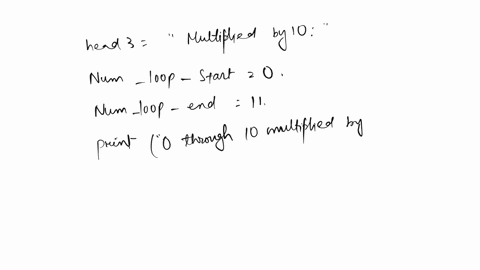 head 3 = " Multiplied by 10: "
Num _loop _ Start = 0.
Num _loop _ end = 11.
print ("0 through 10 multiplied by